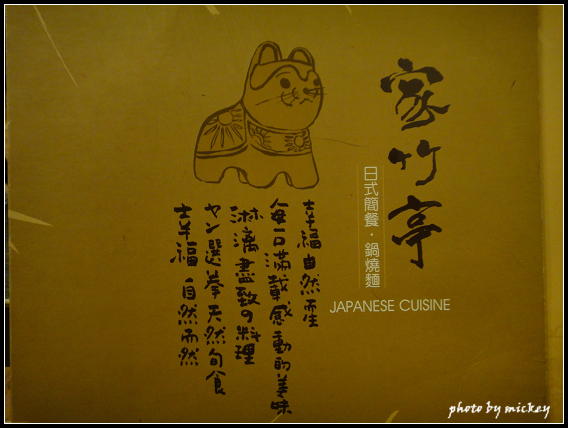 家竹亭
日式簡餐．鍋燒麵
JAPANESE CUISINE
幸福自然而生
每一口滿載感動的美味
淋漓盡致の料理
ヤン選拳天然旬食
幸福自然而然
photo by mickey